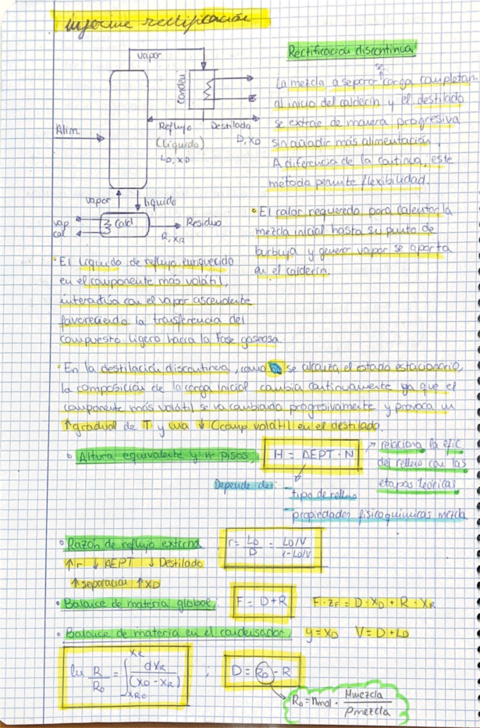 Informe rectificación
vapor
Conden
Alim.
Reflujo
(Líquido)
L0, XD
Destilado
D, XD
vapor
líquido
vap
cal
Cald
Residuo
R, XR
Rectificación discontinua
La mezcla a separar carga completam.
al inicio del calderín y el destilado
se extrae de manera progresiva
sin añadir más alimentación.
A diferencia de la continua, este
método permite flexibilidad.
• El calor requerido para calentar la
mezcla inicial hasta su punto de
burbuja y generar vapor se aporta
en el calderín.
• El líquido de reflujo, enriquecido
en el componente más volátil,
interactúa con el vapor ascendente
favoreciendo la transferencia del
compuesto ligero hacia la fase gaseosa
• En la destilación discontinua, como no se alcanza el estado estacionario,
la composición de la carga inicial cambia continuamente ya que el
componente más volátil se va cambiando progresivamente y provoca un
↑ gradual de T y una ↓ Ccomp volátil en el destilado.
• Altura equivalente y nº pisos,
H = AEPT · N
→ relaciona la efic
del relleno con las
etapas teóricas
Depende de:
- tipo de relleno
- propiedades fisicoquímicas mezcla
• Razón de reflujo externa
r = L0/D = L0/V / 1-L0/V
↑ r ↓ AEPT ↓ Destilado
↑ separación ↑ XD
• Balance de materia global,
F = D + R
F · zF = D · XD + R · XR
• Balance de materia en el condensador,
y = XD V = D + L0
ln R/R0 = ∫ XR0 XR dXR/(XD - XR) ; D = R0 - R
R0 = nmol · Mmezcla/ρmezcla